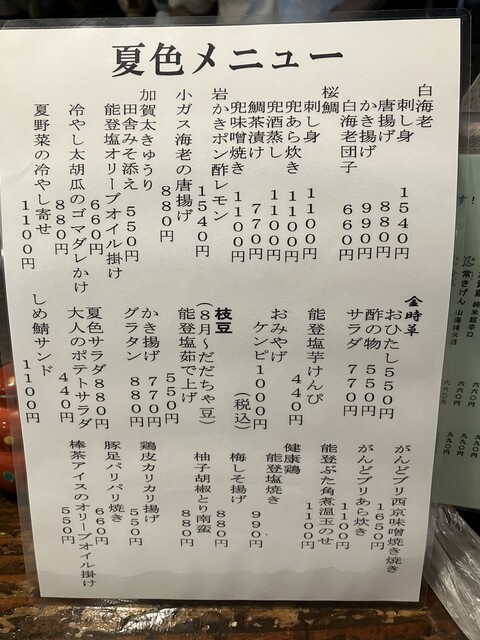 夏色メニュー
白海老
刺し身 1540円
唐揚げ 880円
かき揚げ 990円
白海老団子 660円
桜鯛
刺し身 1100円
兜あら炊き 1100円
兜酒蒸し 1100円
鯛茶漬け 770円
兜味噌焼き 1100円
岩かきポン酢レモン 1540円
小ガス海老の唐揚げ 880円
加賀太きゅうり
田舎みそ添え 550円
能登塩オリーブオイル掛け 660円
冷やし太胡瓜のゴマダレかけ 880円
夏野菜の冷やし寄せ 1100円
金時草
おひたし 550円
酢の物 550円
サラダ 770円
能登塩芋けんぴ 440円
おみやげ
ケンピ 1000円
(税込)
枝豆
(8月~だだちゃ豆)
能登塩茹で上げ 550円
かき揚げ 770円
グラタン 880円
夏色サラダ 880円
大人のポテトサラダ 440円
しめ鯖サンド 1100円
がんどブリ西京味噌焼き焼き 1650円
がんどブリあら炊き 1100円
能登ぶた角煮温玉のせ 1100円
健康鶏
能登塩焼き 990円
梅しそ揚げ 880円
柚子胡椒とり南蛮 880円
鶏皮カリカリ揚げ 550円
豚足パリパリ焼き 660円
棒茶アイスのオリーブオイル掛け 550円
す!
常きげん
純米超辛口